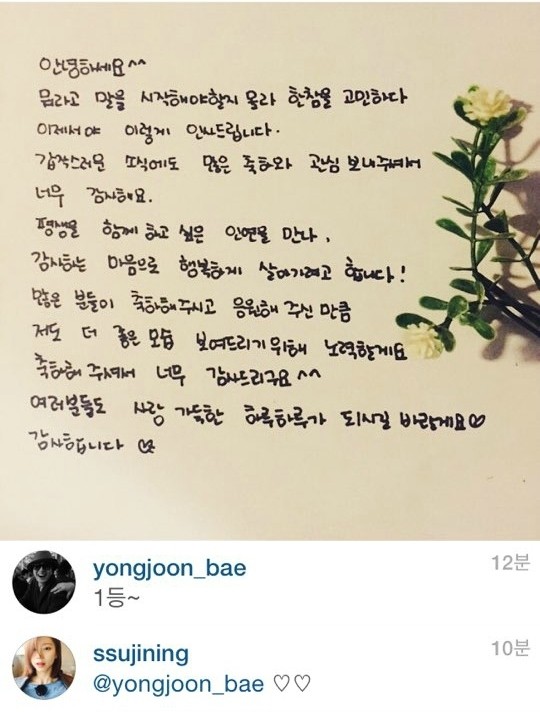 안녕하세요^^
뭐라고 말을 시작해야할지 몰라 한참을 고민하다
이제서야 이렇게 인사드립니다.
갑작스러운 소식에도 많은 축하와 관심 보내주셔서
너무 감사해요.
평생을 함께 하고 싶은 인연을 만나,
감사하는 마음으로 행복하게 살아가려고 합니다!
많은 분들이 축하해주시고 응원해 주신 만큼
저도 더 좋은 모습 보여드리기 위해 노력할게요
축하해 주셔서 너무 감사드리구요^^
여러분들도 사랑 가득한 하루하루가 되시길 바랄게요♡
감사합니다 ♡
yongjoon_bae 12분
1등~
ssujining 10분
@yongjoon_bae ♡♡